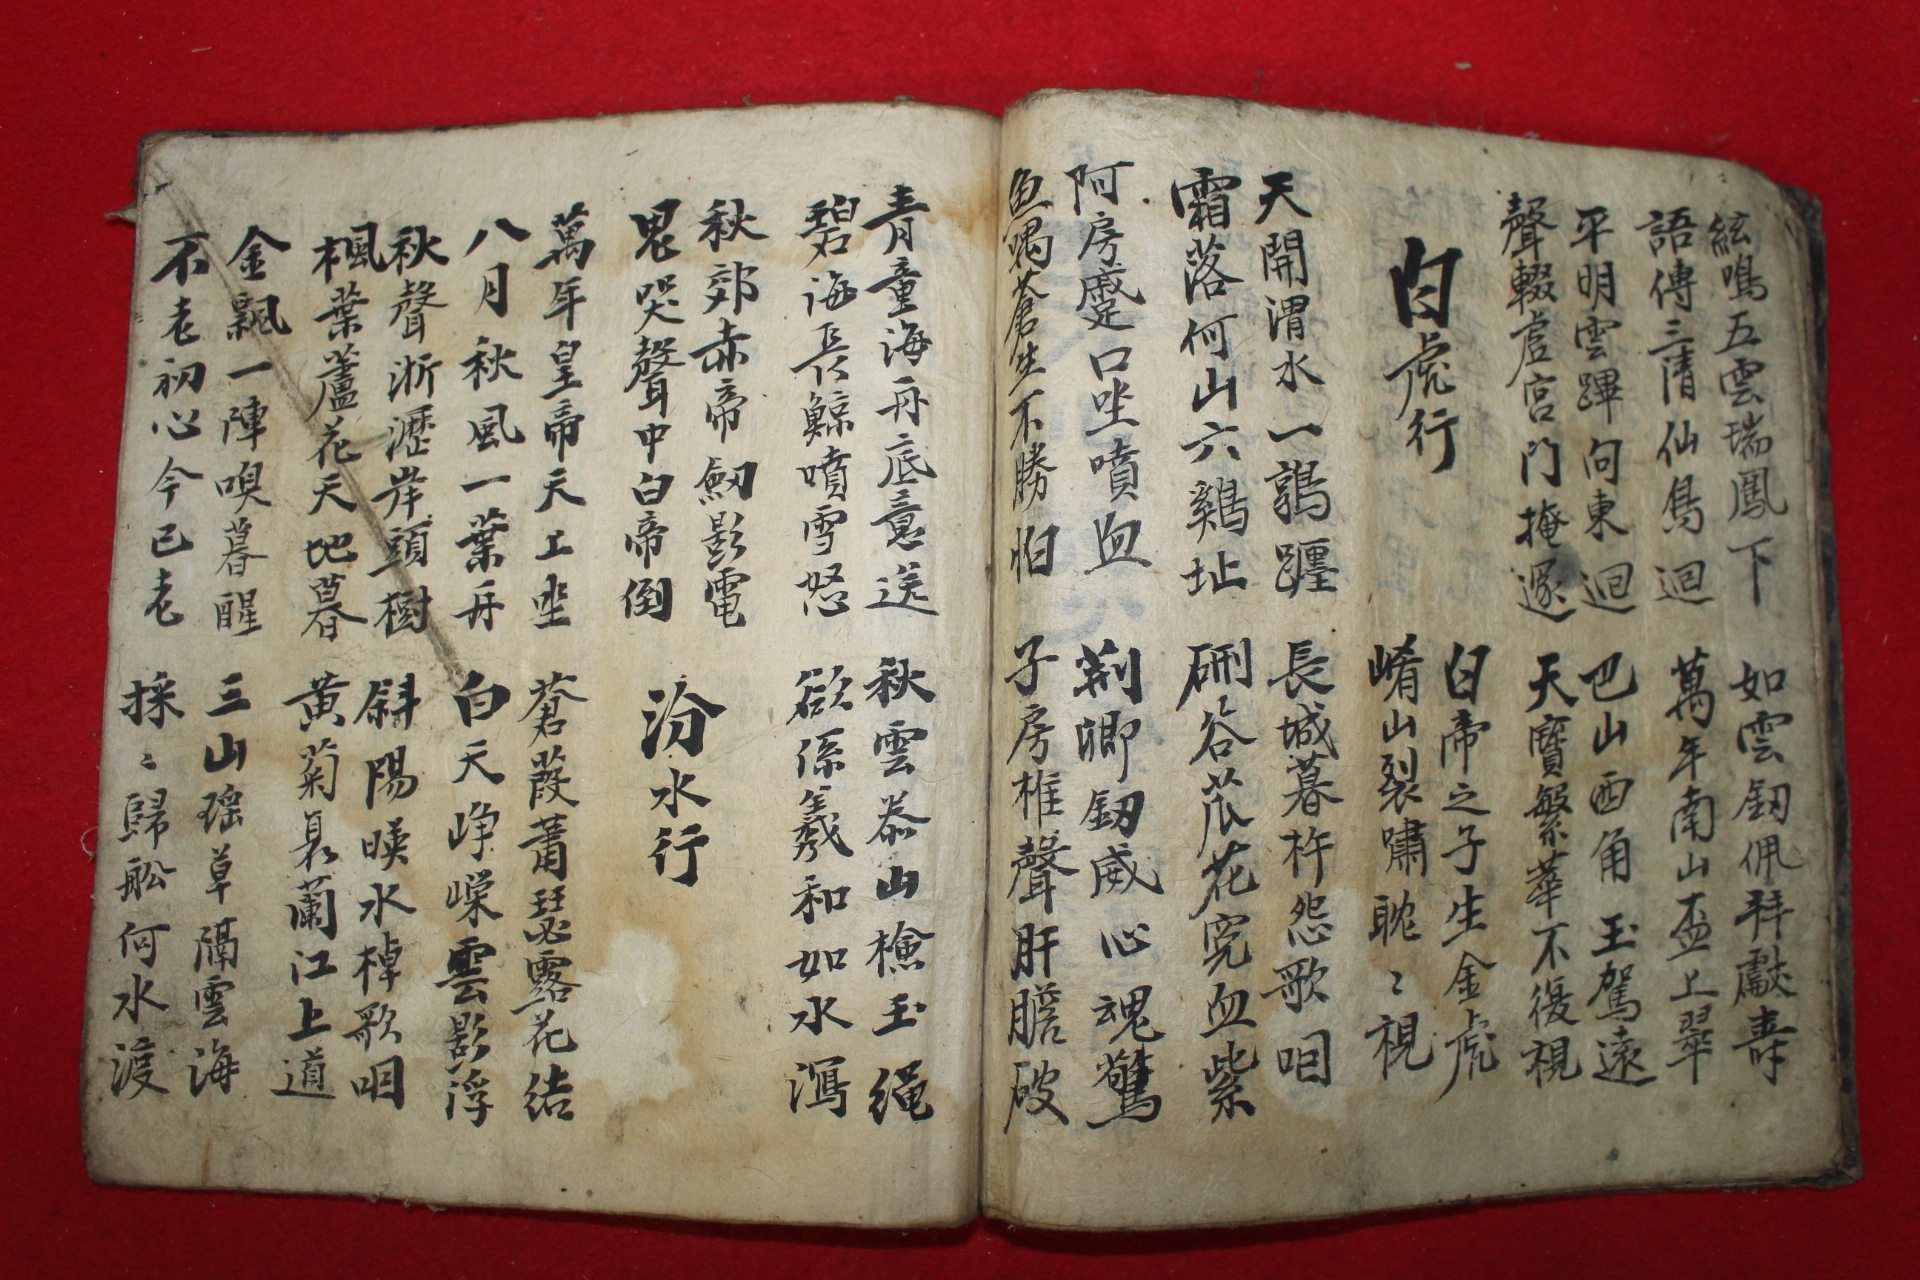 絃鳴五雲瑞鳳下 如雲釼佩拜獻壽
語傳三清仙鳥迴 萬年南山盃上翠
平明雲蹕向東迴 巴山西角玉駕遠
聲輟虛宮門掩邃 天寶繁華不復視
白虎行 白帝之子生金虎
崤山裂嘯耽〻視
天開渭水一鶉躔 長城暮杵怨歌咽
霜落何山六鷄址 硎谷苽花寃血紫
阿房蹙口坐噴血 荊卿釼威心魂驚
魚喁蒼生不勝怕 子房椎聲肝膽破
青童海舟底意送 秋雲泰山檢玉繩
碧海長鯨噴雪怒 欲係羲和如水瀉
秋郊赤帝釼影電
鬼哭聲中白帝倒
汾水行
萬年皇帝天上坐 蒼葭蕭瑟露花結
八月秋風一葉舟 白天崢嶸雲影浮
秋聲淅瀝岸頭樹 斜陽暎水棹歌咽
楓葉蘆花天地暮 黃菊衰蘭江上道
金飄一陣嗅暮醒 三山瑤草隔雲海
不老初心今已老 採〻歸舩何水渡